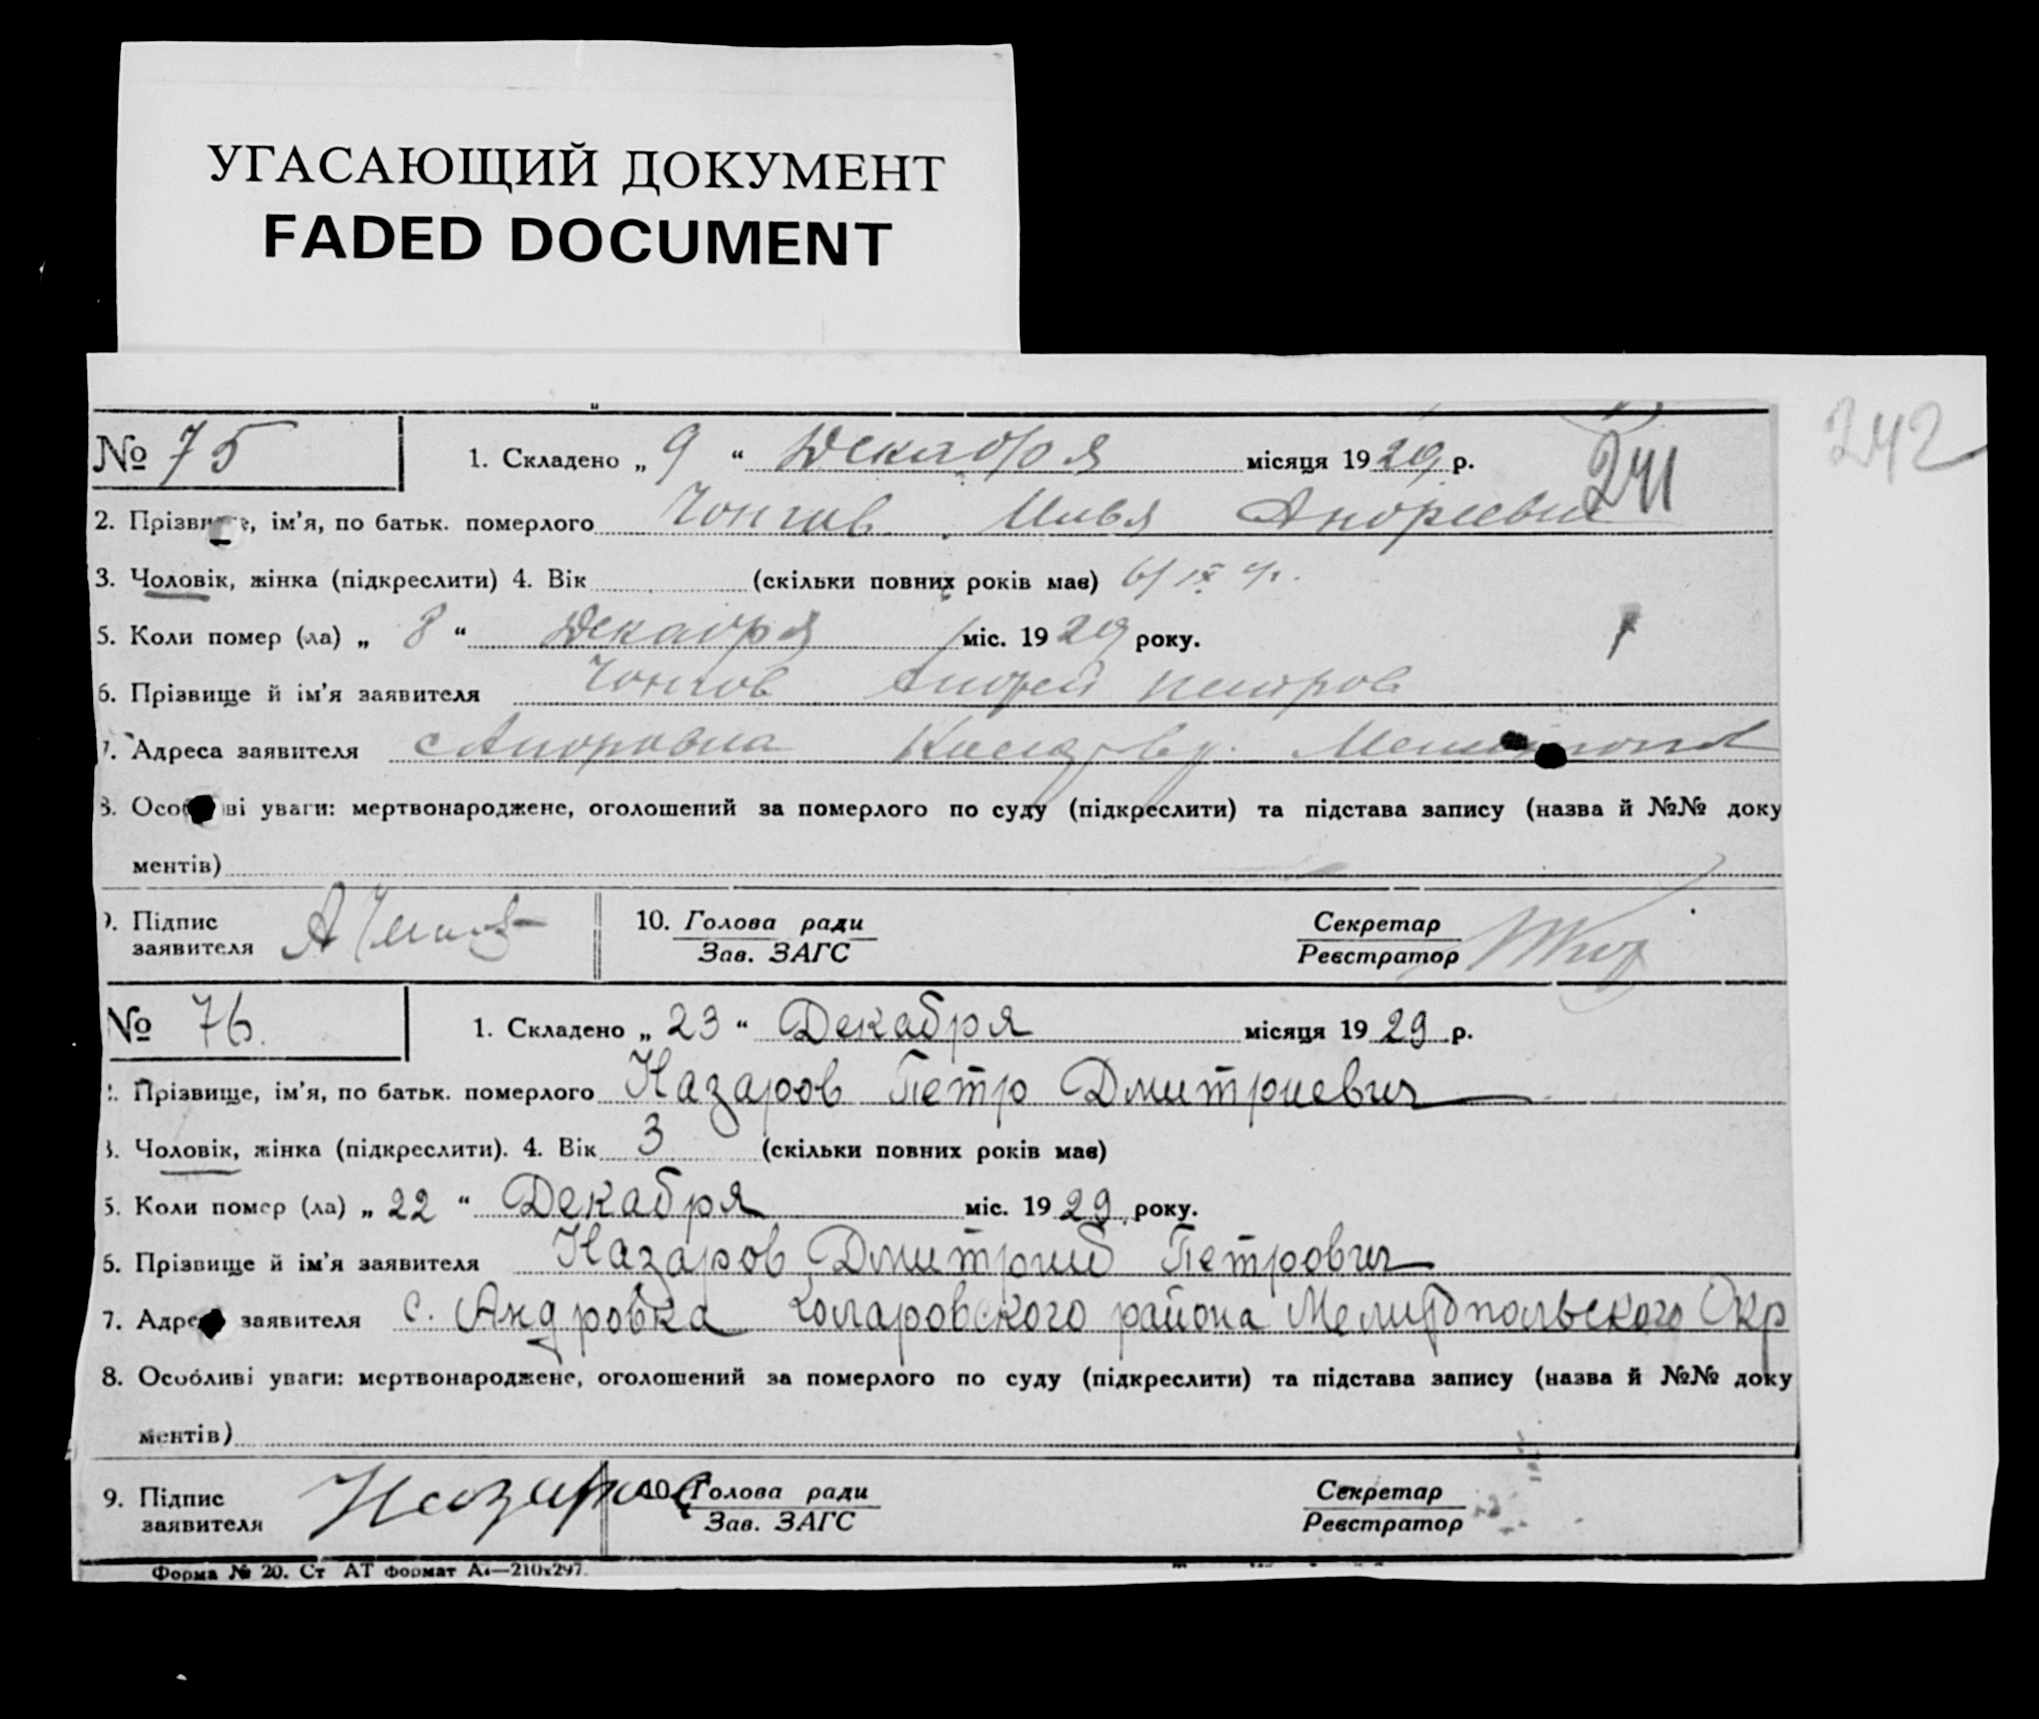 УГАСАЮЩИЙ ДОКУМЕНТ
FADED DOCUMENT
242
241
№ 75
1. Складено „ 9 “ Декабря місяця 1929 р.
2. Прізвище, ім’я, по батьк. померлого Илья Андреевич
3. Чоловік, жінка (підкреслити) 4. Вік (скільки повних років має)
5. Коли помер (ла) „ 8 “ Декабря міс. 1929 року.
6. Прізвище й ім’я заявителя Андрей Петров
7. Адреса заявителя с Андровка
8. Особливі уваги: мертвонароджене, оголошений за померлого по суду (підкреслити) та підстава запису (назва й №№ доку
ментів)
9. Підпис заявителя
10. Голова ради
Зав. ЗАГС
Секретар
Реєстратор
№ 76.
1. Складено „ 23 “ Декабря місяця 1929 р.
2. Прізвище, ім’я, по батьк. померлого Назаров Петр Дмитриевич
3. Чоловік, жінка (підкреслити). 4. Вік 3 (скільки повних років має)
5. Коли помер (ла) „ 22 “ Декабря міс. 1929. року.
6. Прізвище й ім’я заявителя Назаров Дмитрий Петрович
7. Адреса заявителя с. Андровка Коларовского района Мелитопольского Окр
8. Особливі уваги: мертвонароджене, оголошений за померлого по суду (підкреслити) та підстава запису (назва й №№ доку
ментів)
9. Підпис заявителя Назаров
10. Голова ради
Зав. ЗАГС
Секретар
Реєстратор
Форма № 20. Ст АТ формат А4—210x297.